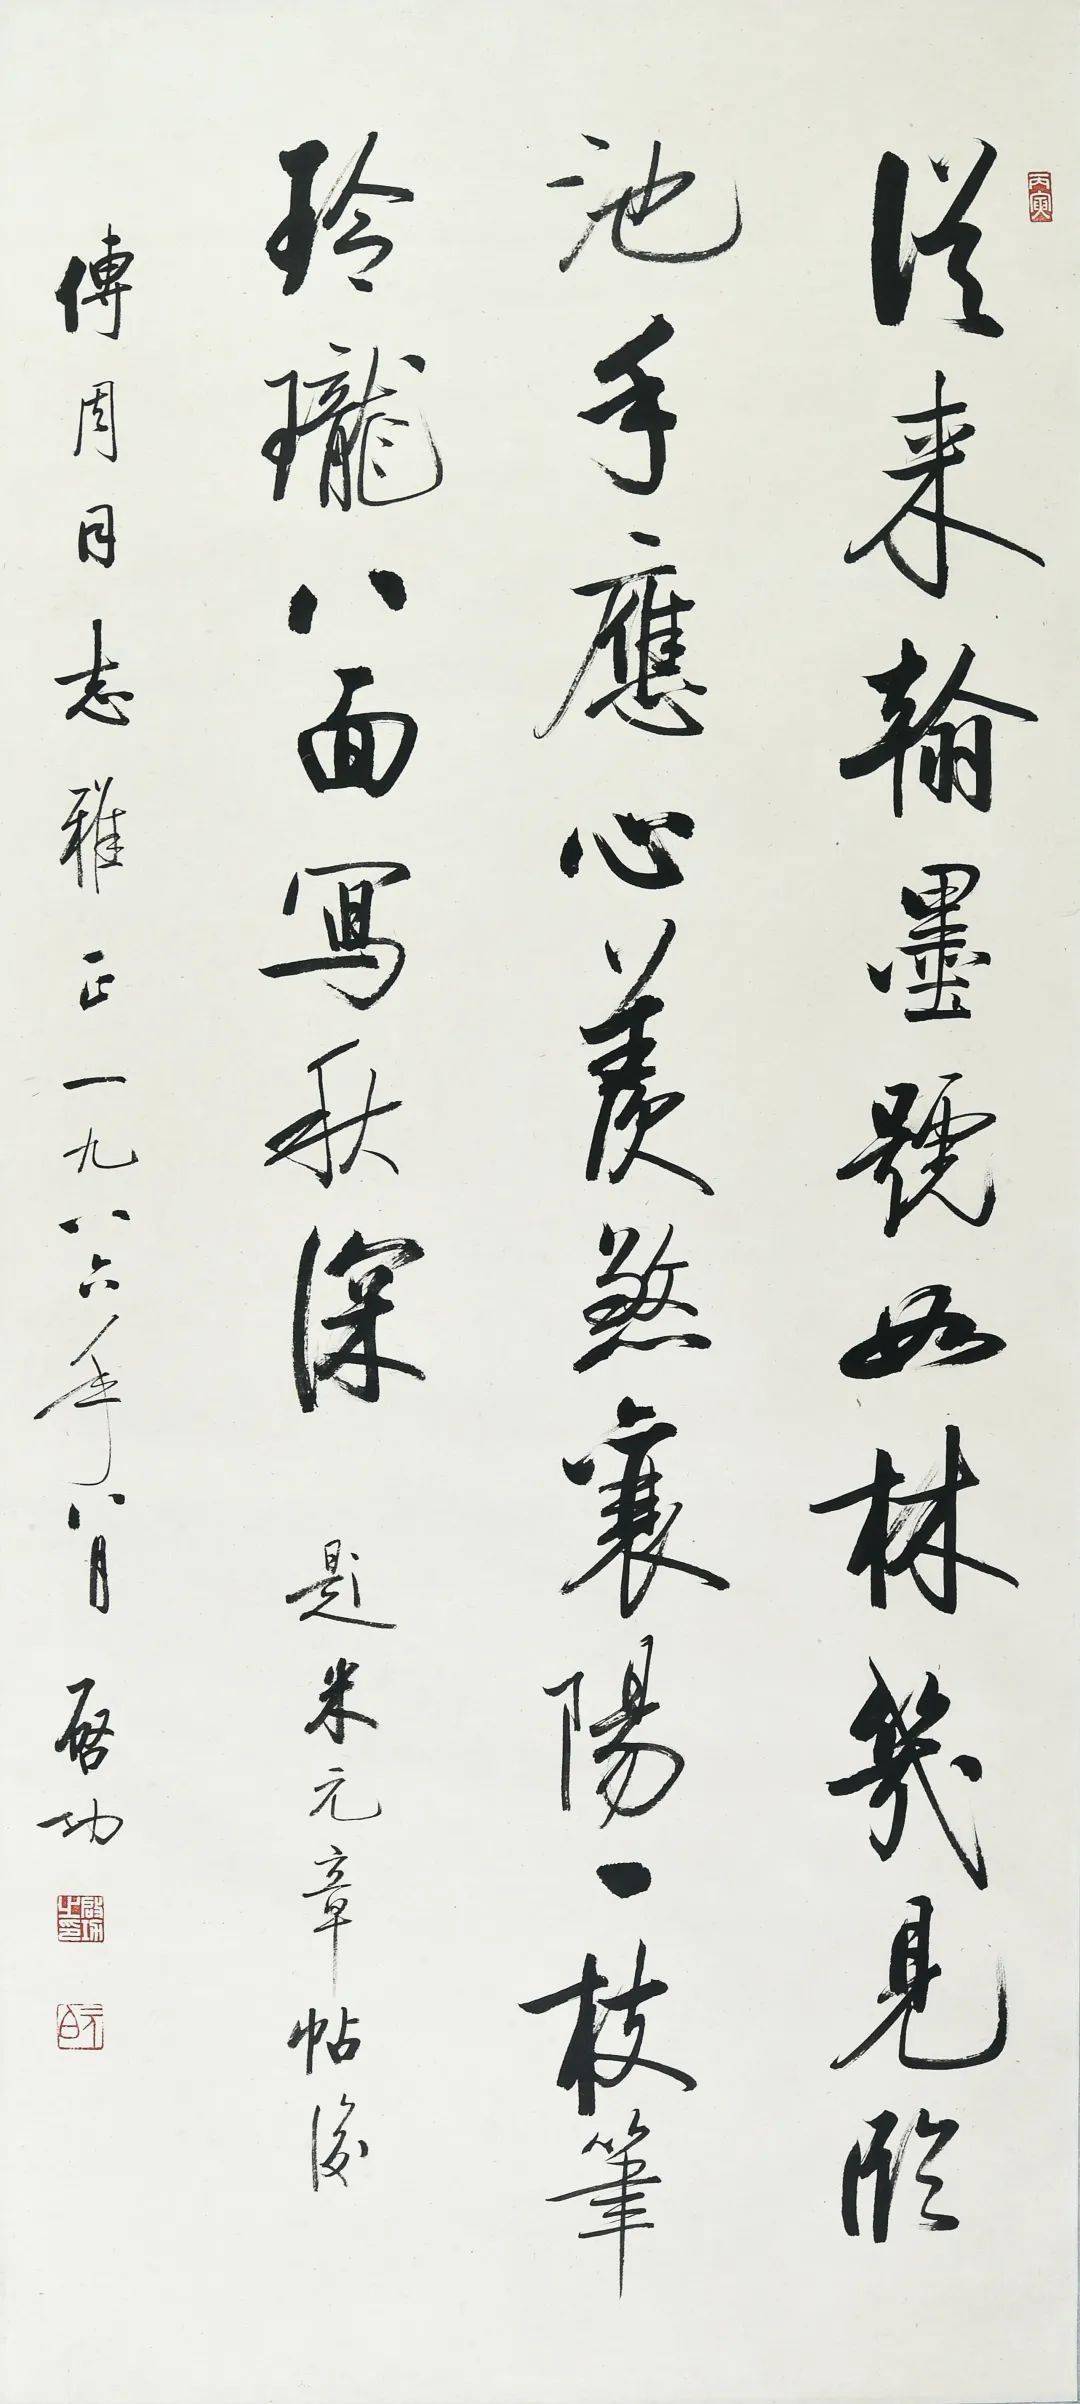 丙寅
從来翰墨號如林幾見臨
池手應心羨煞襄陽一枝筆
玲瓏八面寫秋深 題米元章帖後
傅周同志雅正一九八六年八月 啓功
啟功之印
元白